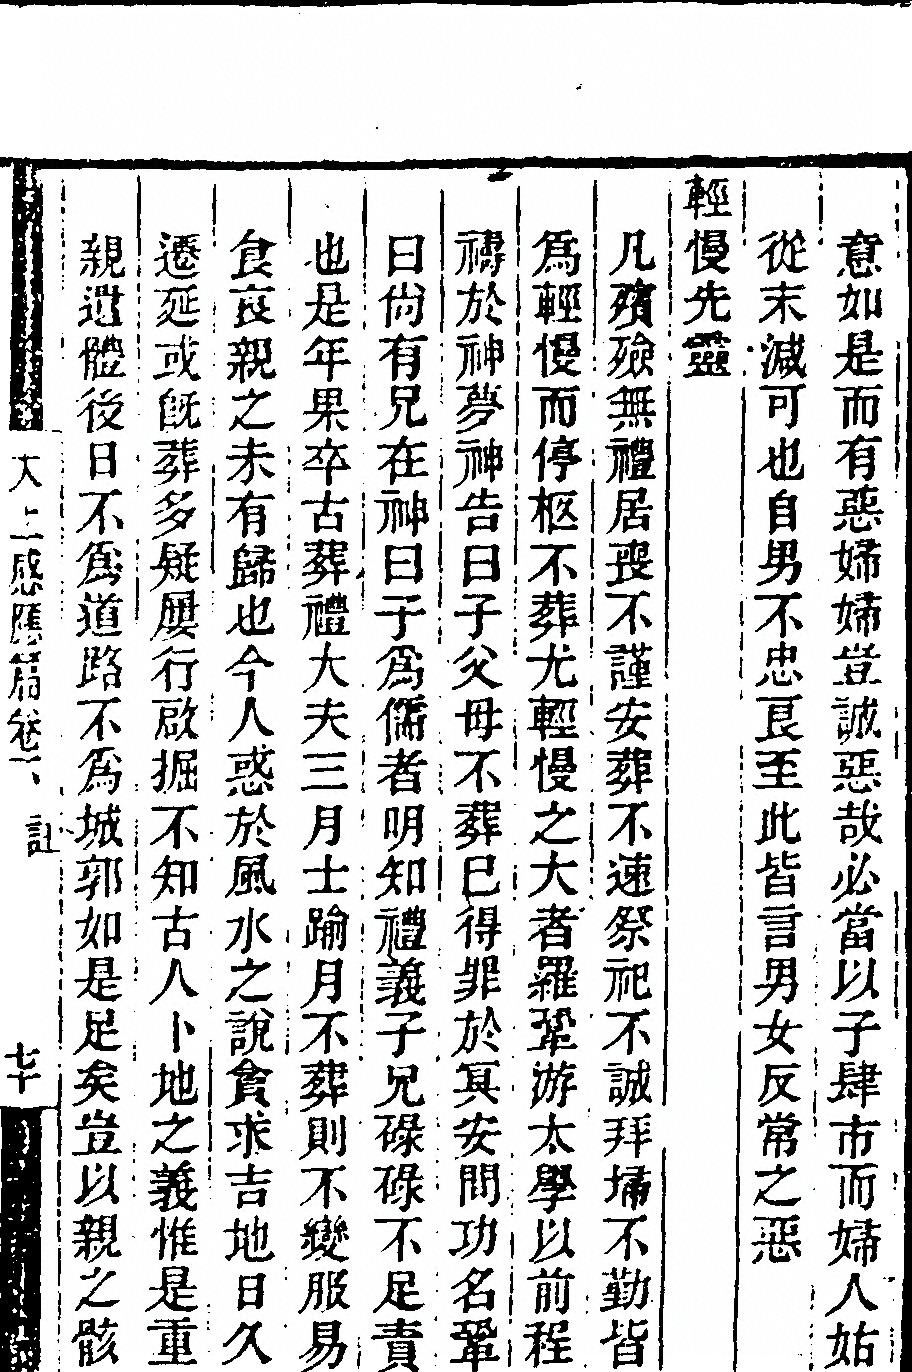 意如是而有惡婦婦豈誠惡哉必當以子肆市而婦人姑
從末減可也自男不忠良至此皆言男女反常之惡
輕慢先靈
凡殯殮無禮居喪不謹安葬不速祭祀不誠拜埽不勤皆
為輕慢而停柩不葬尤輕慢之大者羅鞏游太學以前程
禱於神夢神告曰子父母不葬已得罪於冥安問功名鞏
曰尙有兄在神曰子為儒者明知禮義子兄碌碌不足責
也是年果卒古葬禮大夫三月士踰月不葬則不變服易
食哀親之未有歸也今人惑於風水之說貪求吉地日久
遷延或旣葬多疑屢行啟掘不知古人卜地之義惟是重
親遺體後日不為道路不為城郭如是足矣豈以親之骸
太上感應篇卷一、註
七十